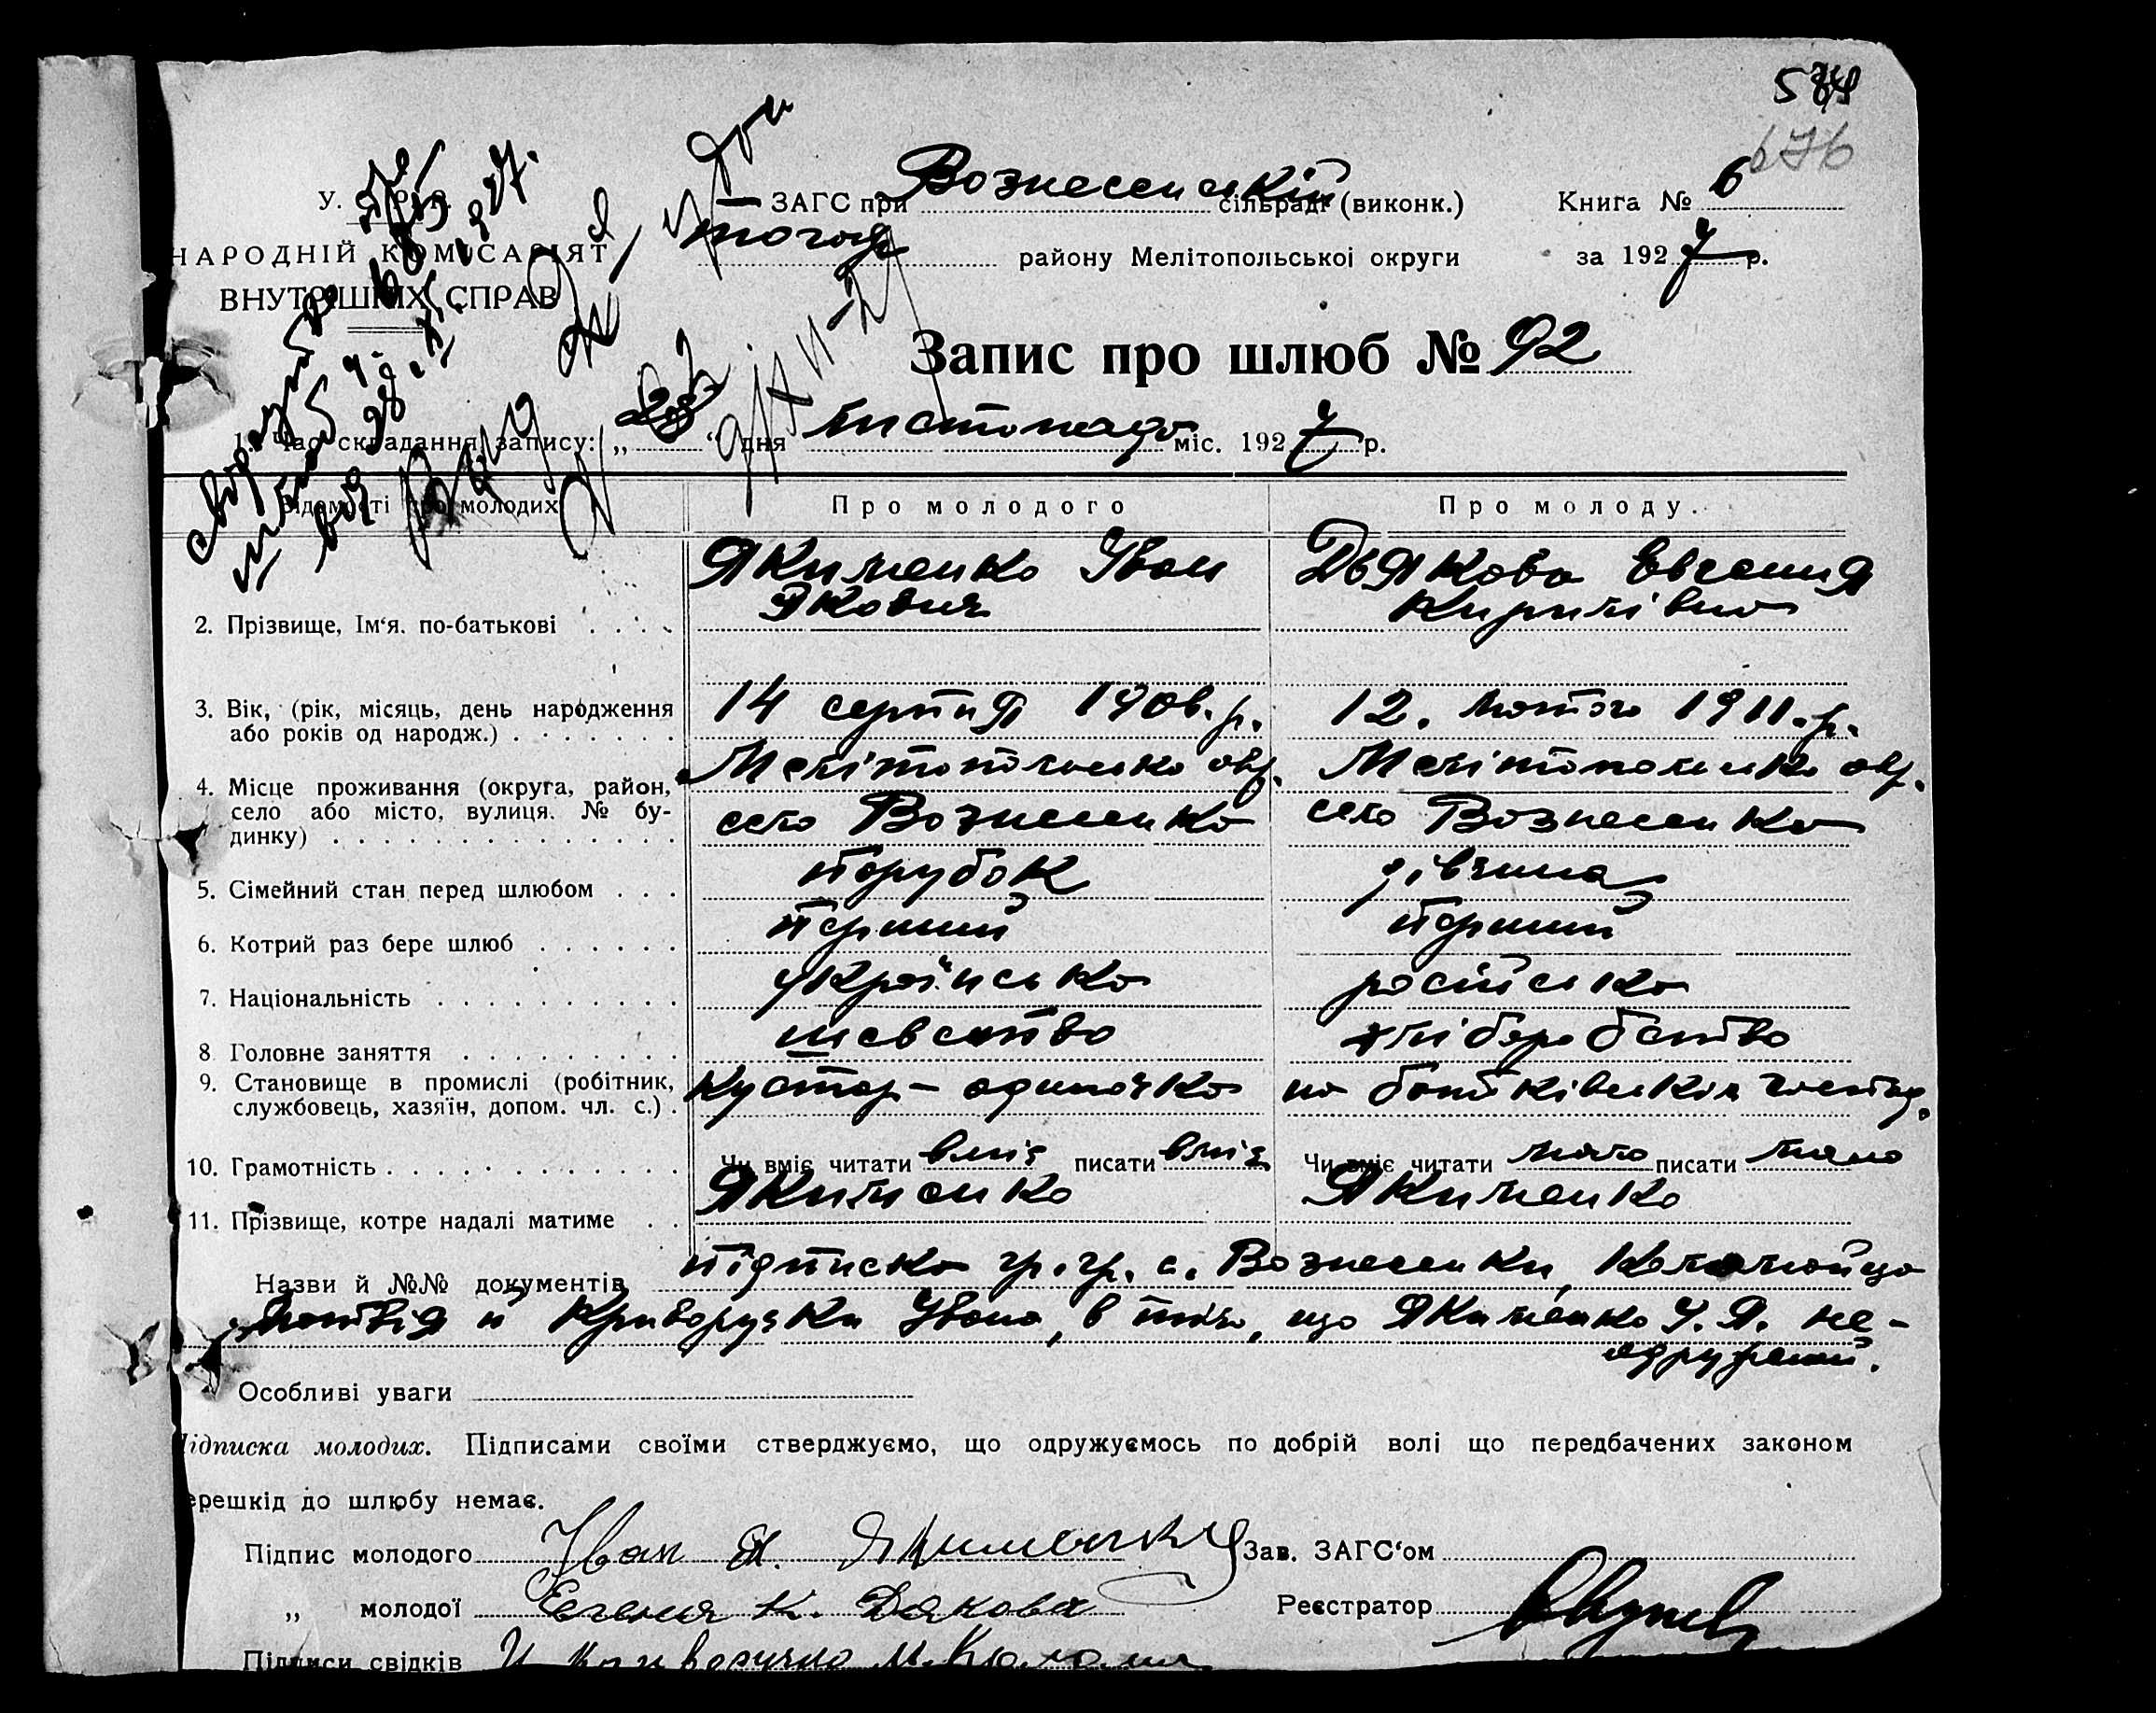 574
676
У. С. Р. Р.
НАРОДНІЙ КОМІСАРІЯТ
ВНУТРІШНІХ СПРАВ
ЗАГС при Вознесенській сільраді (виконк.)
Книга № 6
того ж району Мелітопольської округи
за 1927 р.
Запис про шлюб № 92
1. Час складання запису: „28“ дня листопада міс. 1927 р.
Відомості про молодих
Про молодого
Про молоду.
2. Прізвище, Ім‘я. по-батькові
Якименко Іван
Якович
Дьякова Евгения
Кирилівна
3. Вік, (рік, місяць, день народження
або років од народж.)
14 серпня 1906. р.
12. лютого 1911. р.
4. Місце проживання (округа, район,
село або місто, вулиця. № бу-
динку)
Мелітопольська окр.
село Вознесенка
Мелітопольська окр.
село Вознесенка
5. Сімейний стан перед шлюбом
парубок
дівчина
6. Котрий раз бере шлюб
перший
перший
7. Національність
українська
російська
8. Головне заняття
шевство
хліборобство
9. Становище в промислі (робітник,
службовець, хазяїн, допом. чл. с.)
кустар-одиночка
на батьківськім господ.
10. Грамотність
Чи вміє читати вміє писати вміє
Чи вміє читати мало писати мало
11. Прізвище, котре надалі матиме
Якименко
Якименко
Назви й №№ документів підписка гр.гр. с. Вознесенки,
й Криворучки Івана, в тім, що Якименко І. Я. не-
одружений.
Особливі уваги
Підписка молодих. Підписами своїми стверджуємо, що одружуємось по добрій волі що передбачених законом
перешкід до шлюбу немає.
Підпис молодого Іван Я. Якименко
Зав. ЗАГС‘ом
„ молодої Евгения К. Дякова
Реєстратор
Підписи свідків И Криворучко М.